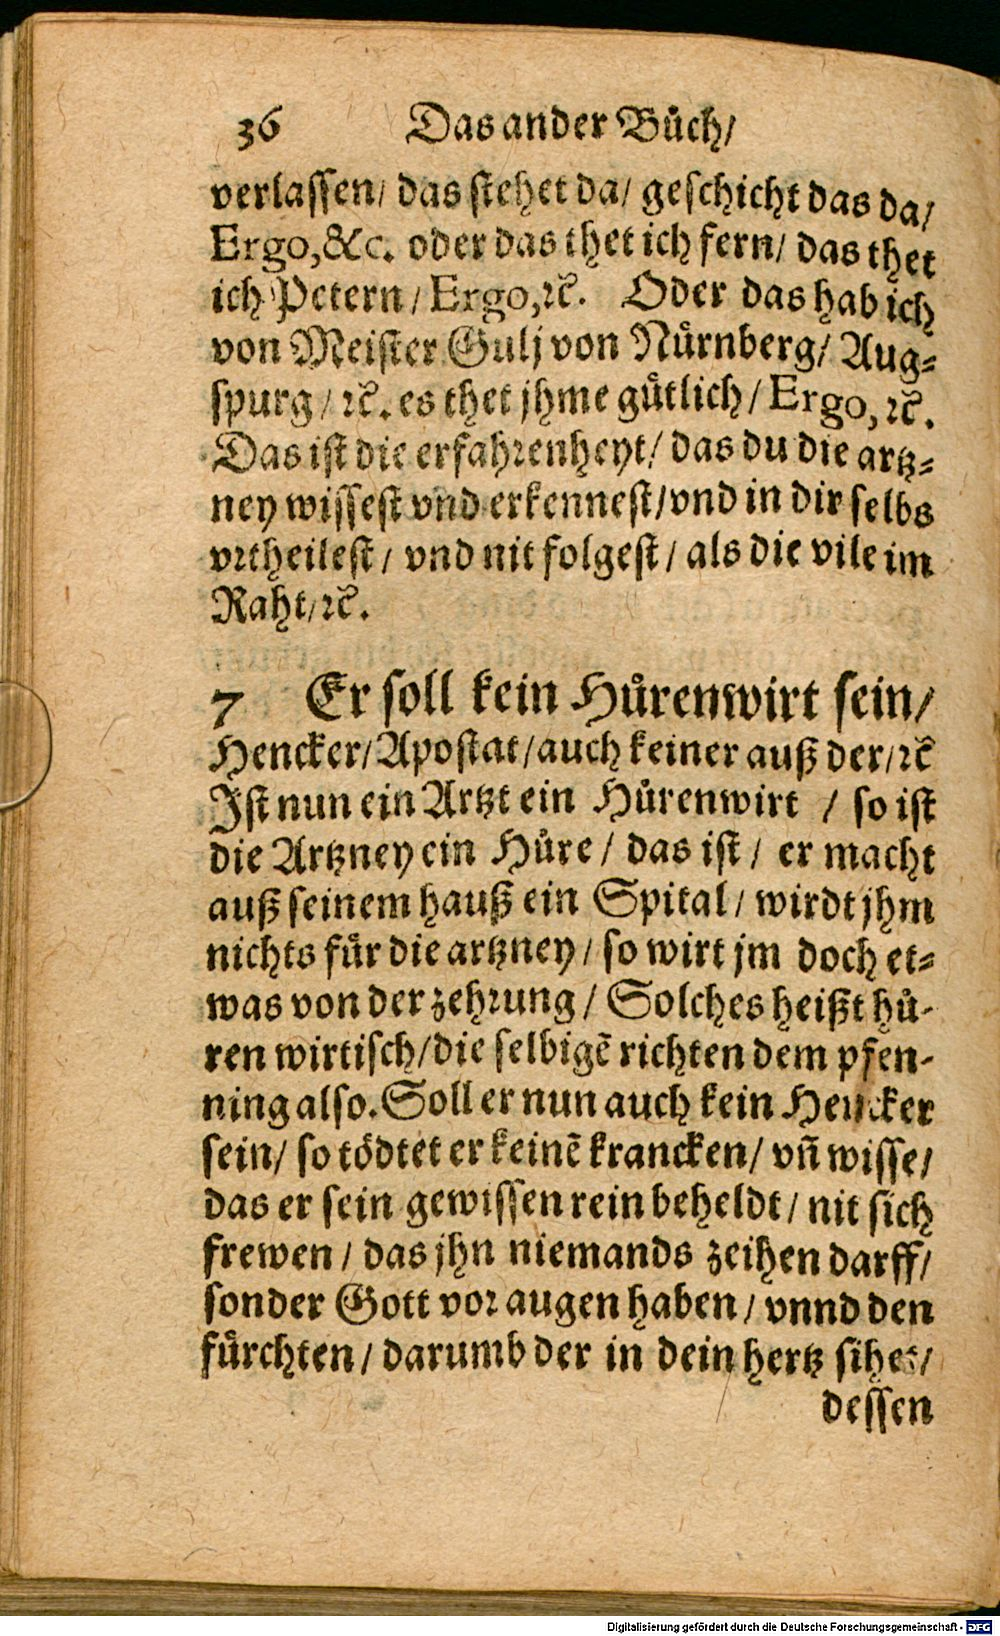 36 Das ander Bůch/
verlassen/ das stehet da/ geschicht das da/
Ergo, &c. oder das thet ich fern/ das thet
ich Petern/ Ergo, ꝛc. Oder das hab ich
von Meister Gulj von Nürnberg/ Aug⸗
spurg/ ꝛc. es thet jhme gůtlich/ Ergo, ꝛc.
Das ist die erfahrenheyt/ das du die artz⸗
ney wissest vnd erkennest/ vnd in dir selbs
vrtheilest/ vnd nit folgest/ als die vile im
Raht/ ꝛc.
7 Er soll kein Hůrenwirt sein/
Hencker/ Apostat/ auch keiner auß der/ ꝛc
Ist nun ein Artzt ein Hůrenwirt / so ist
die Artzney ein Hůre/ das ist/ er macht
auß seinem hauß ein Spital/ wirdt jhm
nichts für die artzney/ so wirt jm doch et⸗
was von der zehrung/ Solches heißt hů-
ren wirtisch/ die selbigẽ richten dem pfen-
ning also. Soll er nun auch kein Hencker
sein/ so tödtet er keinẽ krancken/ vñ wisse/
das er sein gewissen rein beheldt/ nit sich
frewen/ das jhn niemands zeihen darff/
sonder Gott vor augen haben/ vnnd den
fürchten/ darumb der in dein hertz sihet/
dessen
Digitalisierung gefördert durch die Deutsche Forschungsgemeinschaft - DFG